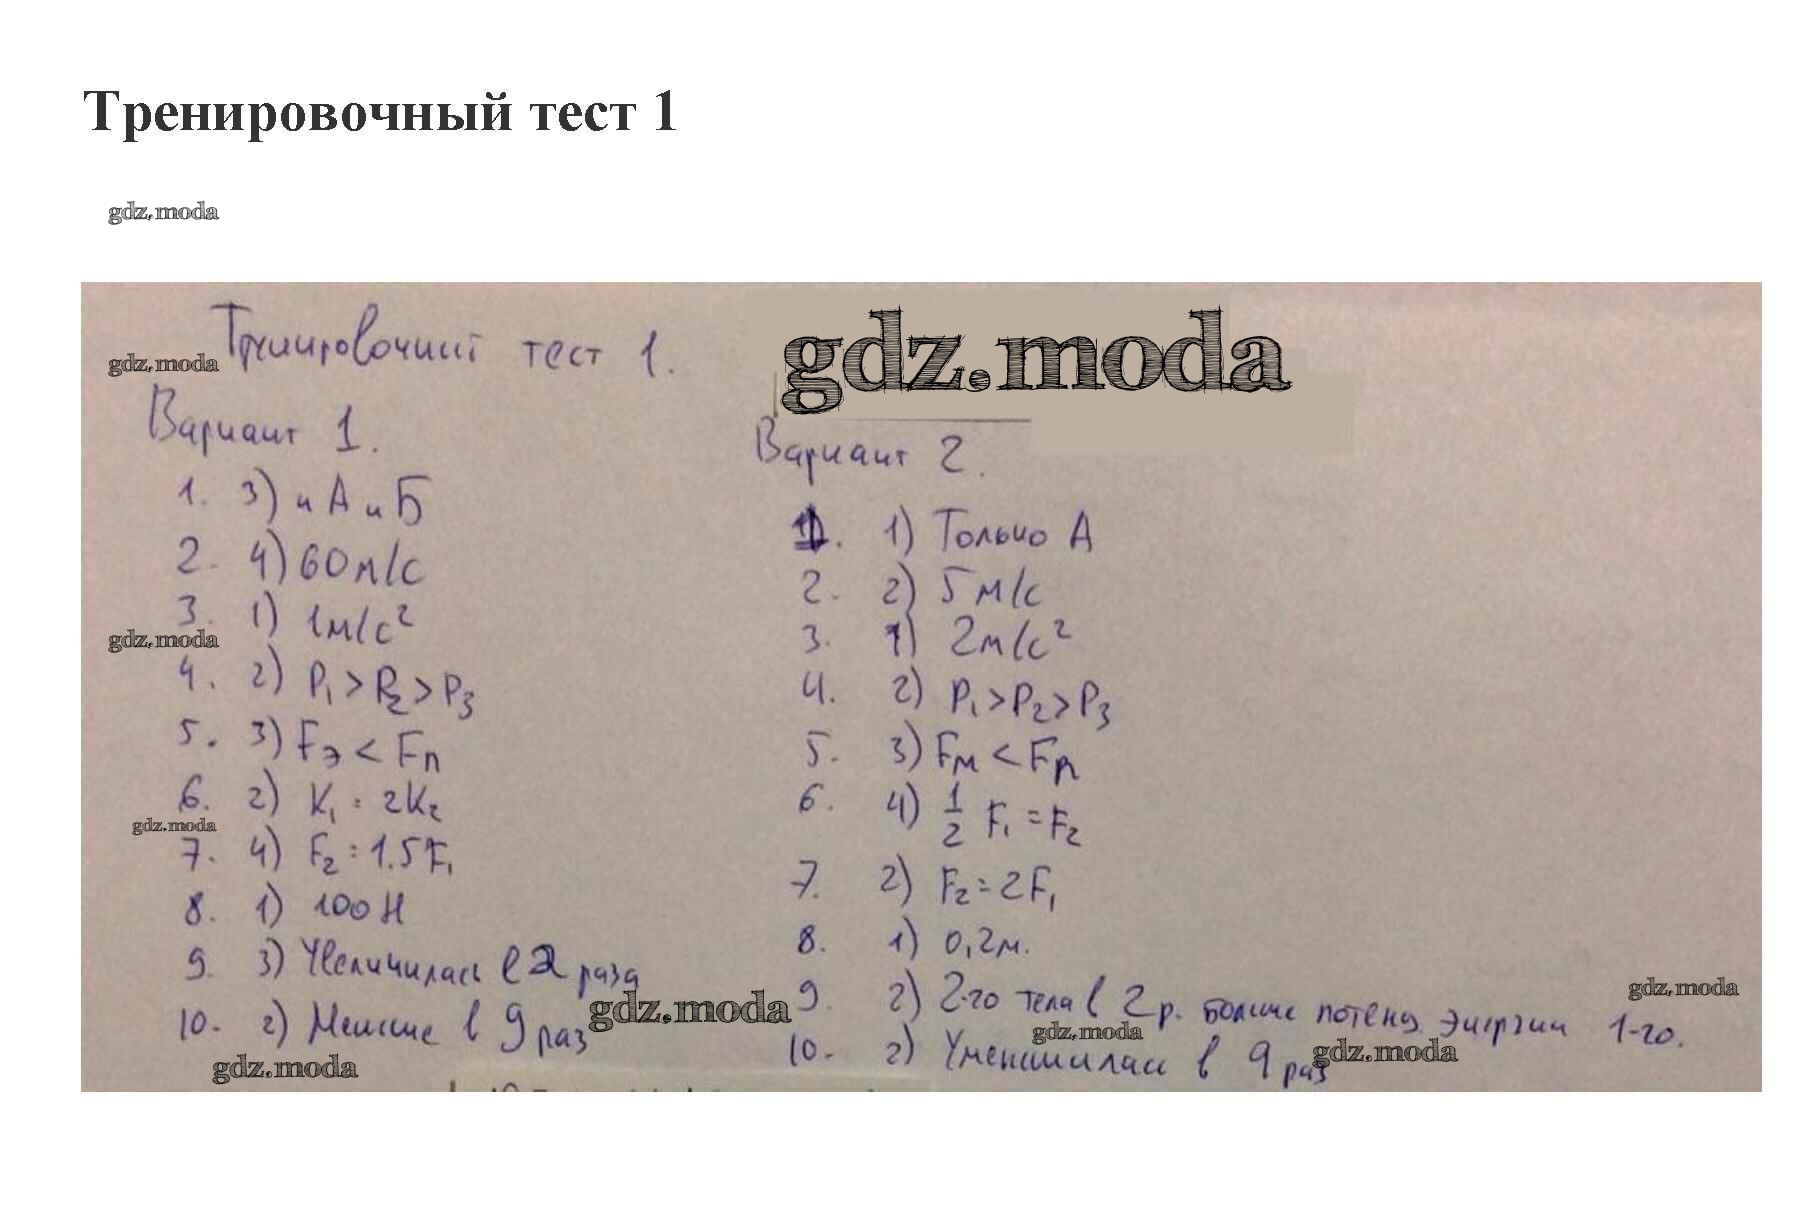 Тренировочный тест 1
gdz.moda
Тренировочний тест 1.
gdz.moda
gdz.moda
Вариант 1.
1. 3) и А и Б
2. 4) 60 м/с
3. 1) 1м/с²
gdz.moda
4. 2) P₁ > P₂ > P₃
5. 3) Fэ < Fп
6. 2) K₁ = 2K₂
gdz.moda
7. 4) F₂ = 1.5F₁
8. 1) 100 Н
9. 3) Увеличилась в 2 раза
10. 2) Меньше в 9 раз
gdz.moda
gdz.moda
Вариант 2.
1. 1) Только А
2. 2) 5 м/с
3. 1) 2м/с²
4. 2) P₁ > P₂ > P₃
5. 3) Fм < Fп
6. 4) 1/2 F₁ = F₂
7. 2) F₂ = 2F₁
8. 1) 0,2м.
9. 2) 2-го тела в 2 р. больше потенц. энергии 1-го.
gdz.moda
gdz.moda
10. 2) Уменьшилась в 9 раз
gdz.moda